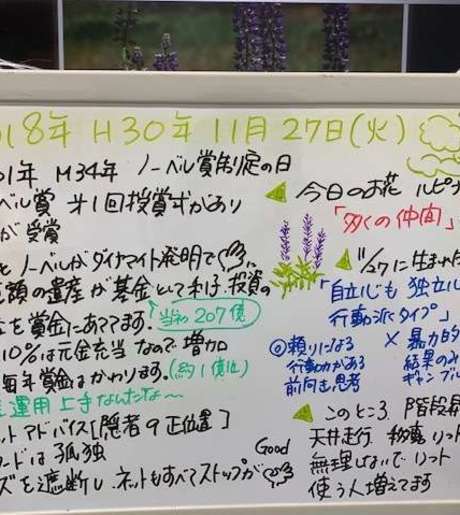 018年 H30年 11月27日(火)
01年 M34年 ノーベル賞制定の日
ベル賞 オ1回授賞式があり
が受賞
ノーベルがダイナマイト発明で
額の遺産が基金として利子、投資の
を賞金にあてます。
当初 207億
10%は元金充当 なので増加
毎年賞金はかわります。(約1億位)
運用上手なんだな〜
ットアドバイス[隠者の正位置]
ードは孤独
ズを遮断し、ネットもすべてストップが
Good
今日のお花 ルピナ
「多くの仲間」
11/27に生まれた
「自立心も独立心
行動派タイプ」
◎頼りになる
行動力がある
前向き思考
×暴力的
結果のみ
ギャンブル
このところ、階段昇
天井走行、移動リフト
無理しないでリフト
使う人増えてます